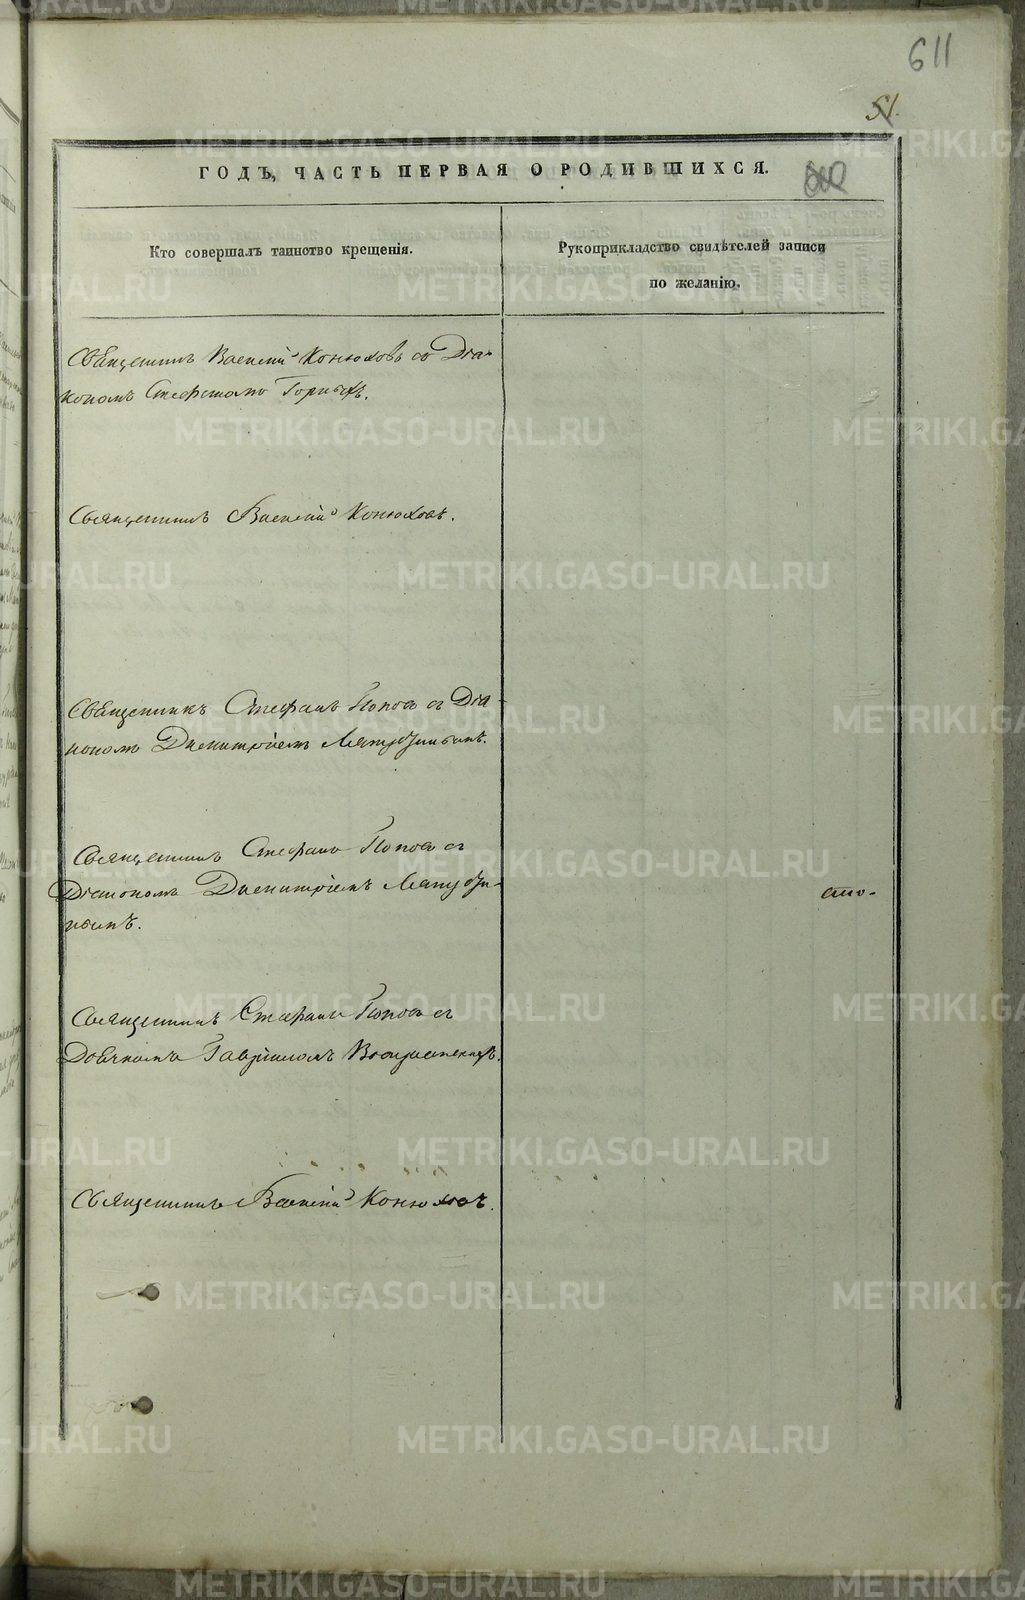 611
51.
ГОДЪ, ЧАСТЬ ПЕРВАЯ О РОДИВШИХСЯ.
Кто совершалъ таинство крещенія.
Рукоприкладство свидѣтелей записи
по желанію.
Священникъ Василій Конюховъ со Діа-
кономъ Стефаномъ Горныхъ.
Священникъ Василій Конюховъ.
Священникъ Стефанъ Поповъ съ Діа-
кономъ Димитріемъ
Священникъ Стефанъ Поповъ съ
Діакономъ Димитріемъ
Священникъ Стефанъ Поповъ съ
Гавріиломъ
Священникъ Василій Конюховъ.
METRIKI.GASO-URAL.RU